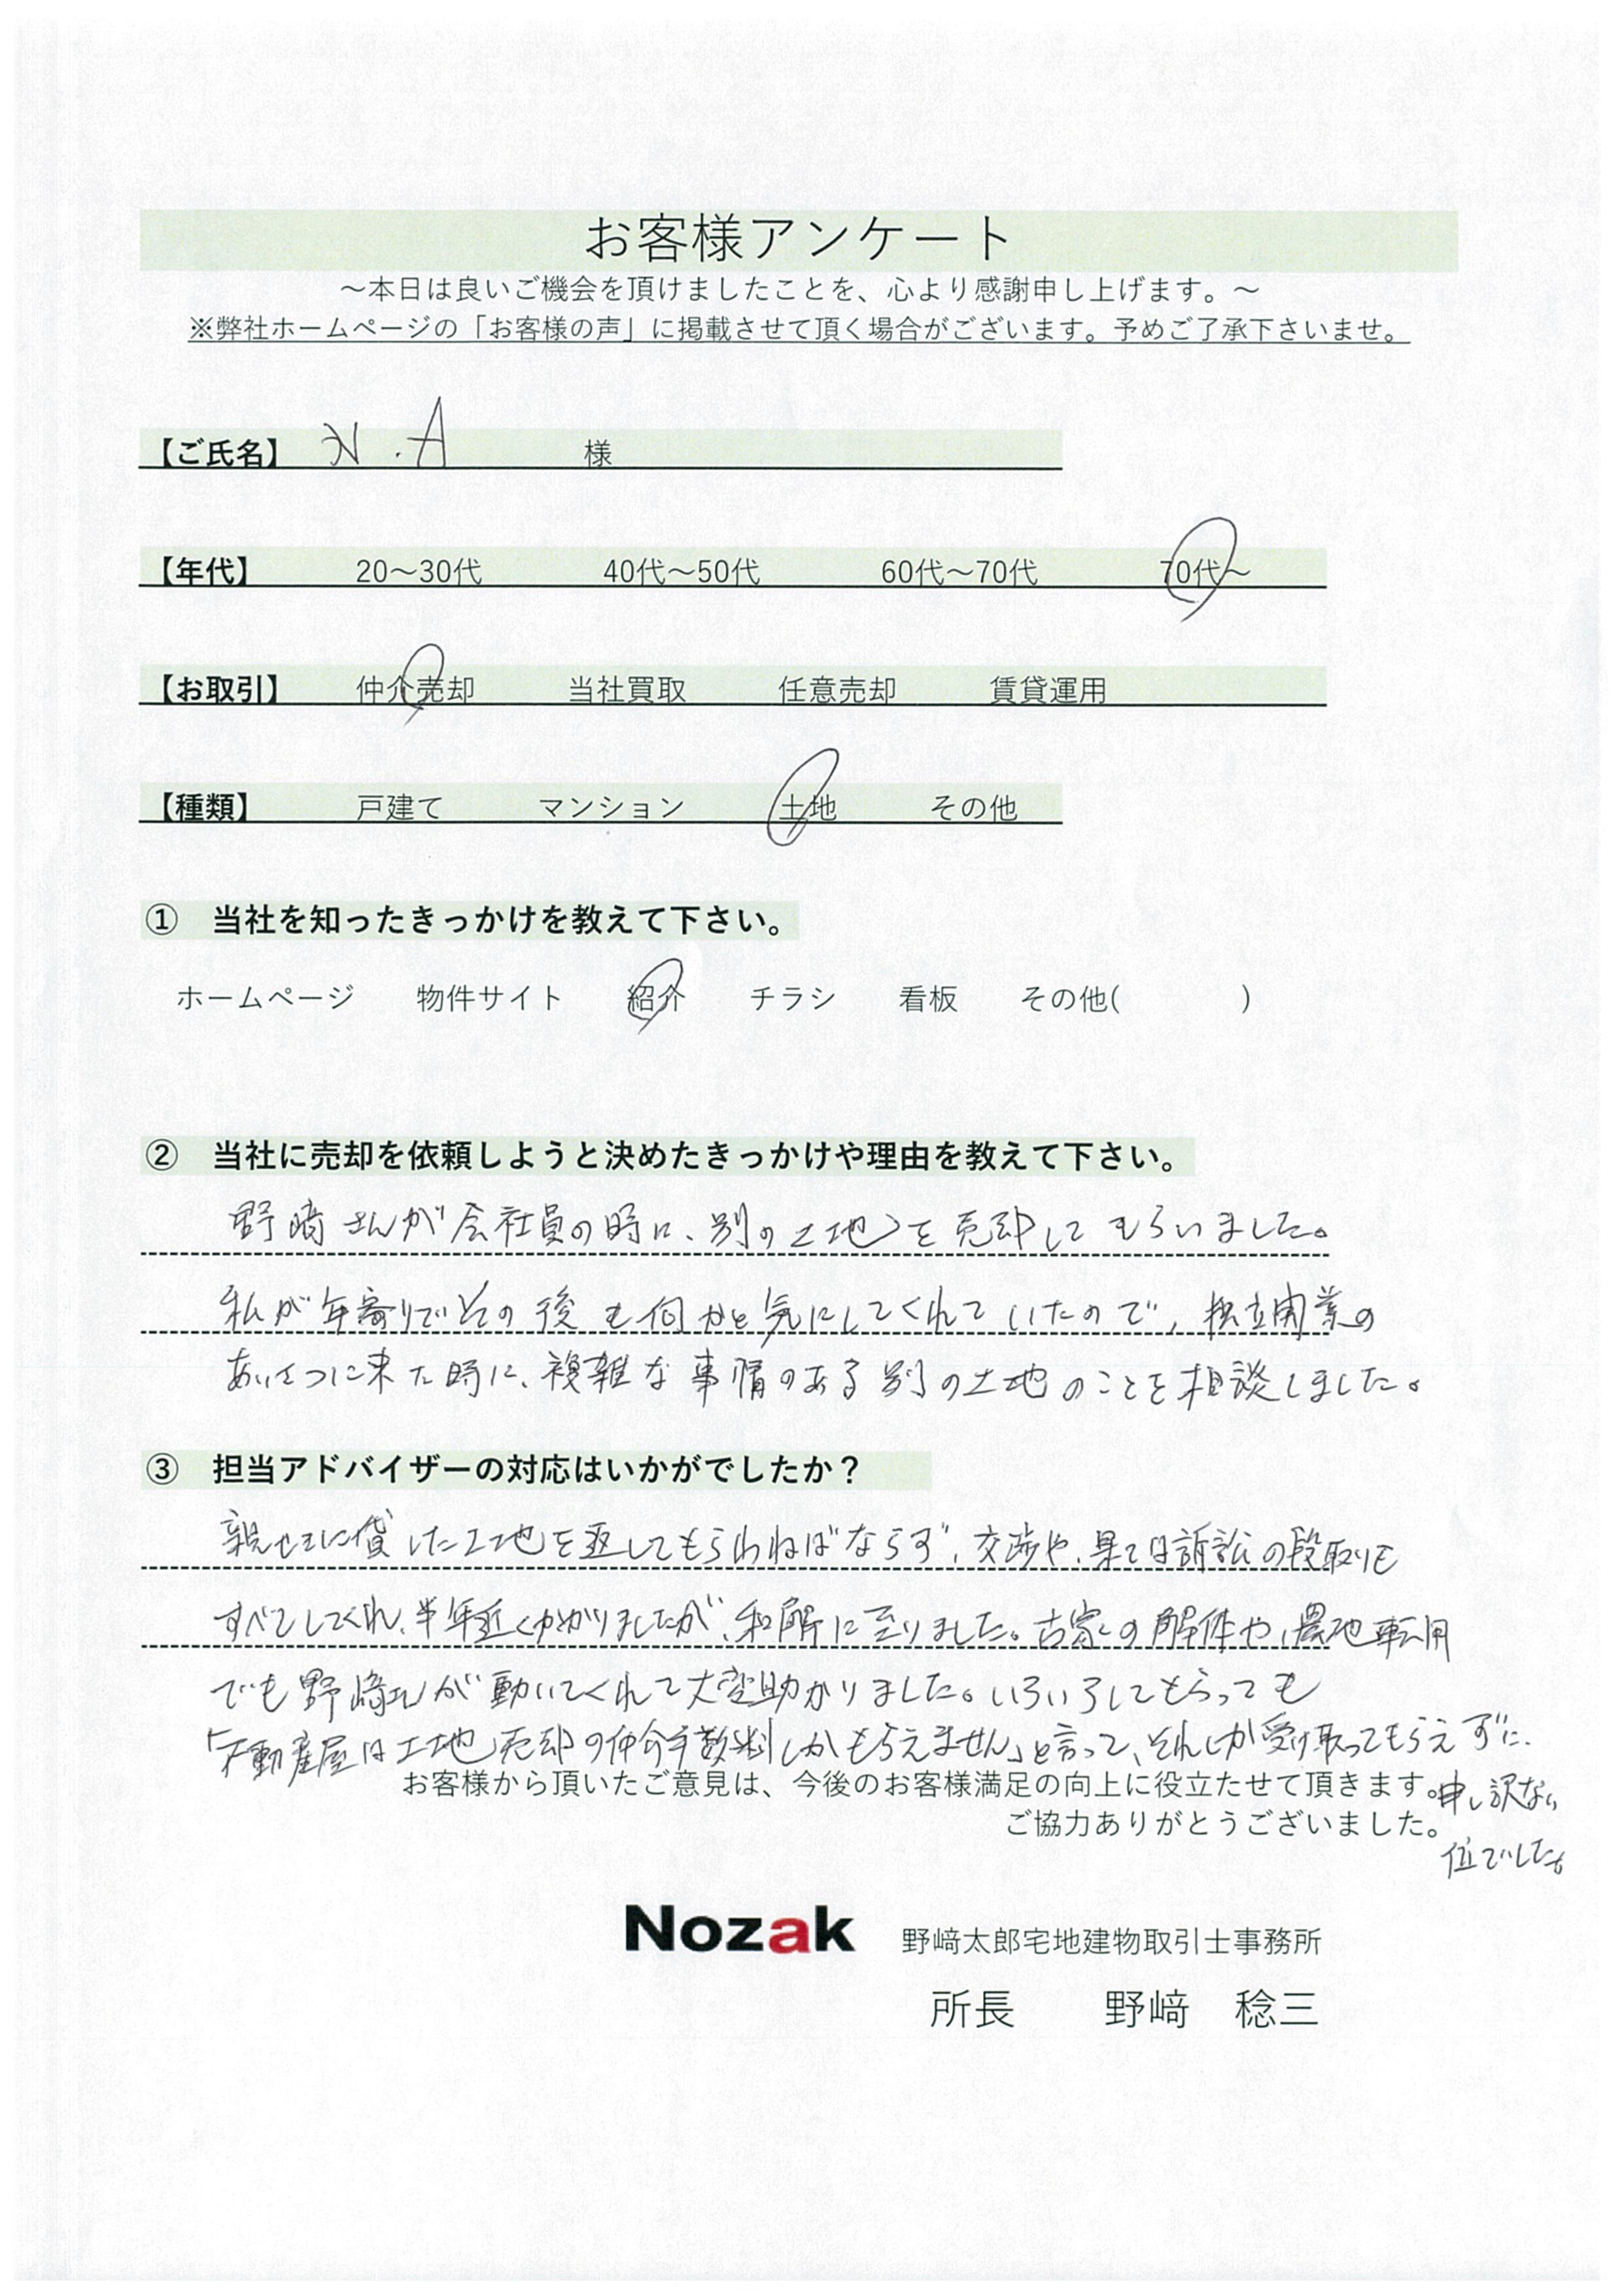 お客様アンケート
～本日は良いご機会を頂けましたことを、心より感謝申し上げます。～
※弊社ホームページの「お客様の声」に掲載させて頂く場合がございます。予めご了承下さいませ。
【ご氏名】 N.A 様
【年代】 20～30代 40代～50代 60代～70代 70代～
【お取引】 仲介売却 当社買取 任意売却 賃貸運用
【種類】 戸建て マンション 土地 その他
① 当社を知ったきっかけを教えて下さい。
ホームページ 物件サイト 紹介 チラシ 看板 その他( )
② 当社に売却を依頼しようと決めたきっかけや理由を教えて下さい。
野崎さんが会社員の時に、別の土地を売却してもらいました。
私が年寄りでその後も何かと気にしてくれていたので、独立開業の
あいさつに来た時に、複雑な事情のある別の土地のことを相談しました。
③ 担当アドバイザーの対応はいかがでしたか？
親せきに貸した土地を返してもらわねばならず、交渉や、果ては訴訟の段取りも
すべてしてくれ、半年近くかかりましたが、和解に至りました。古家の解体や、農地転用
でも野崎さんが動いてくれて大変助かりました。いろいろしてもらっても
「不動産屋は土地売却の仲介手数料しかもらえません」と言って、それしか受け取ってもらえずに、
申し訳ない
位でした。
お客様から頂いたご意見は、今後のお客様満足の向上に役立たせて頂きます。
ご協力ありがとうございました。
Nozak 野﨑太郎宅地建物取引士事務所
所長 野﨑 稔三